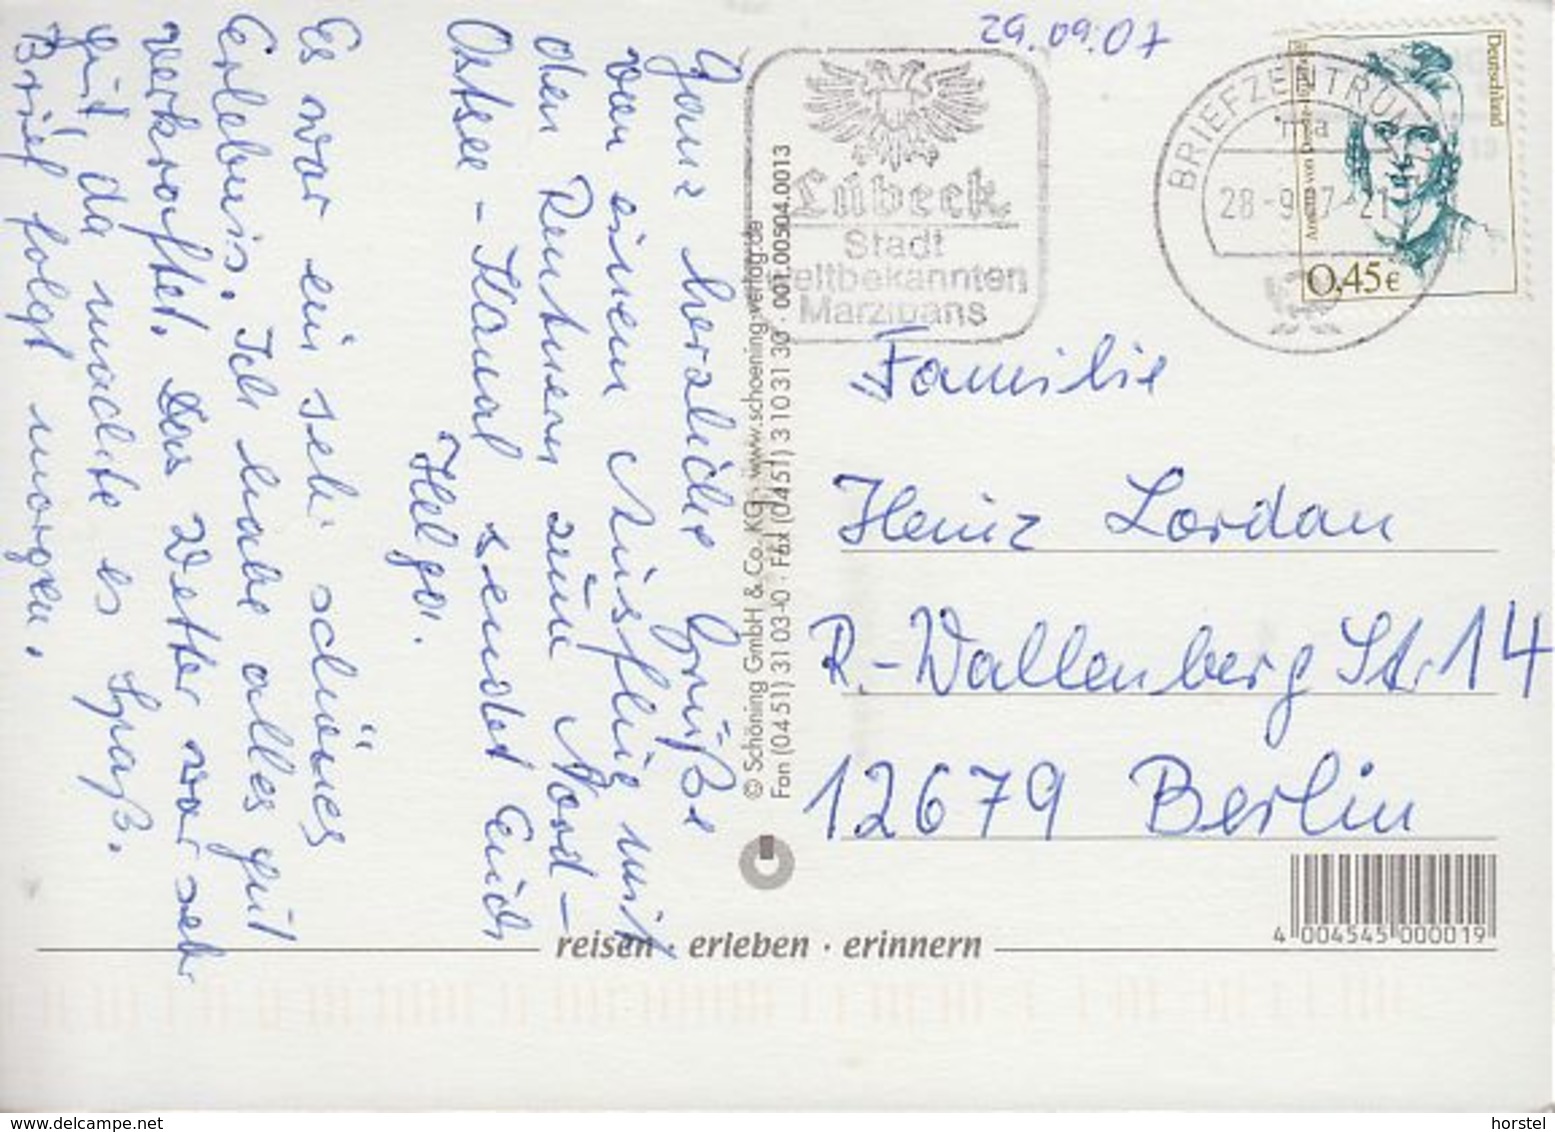 29.09.07
Ganz herzliche Grüße
von einem Ausflug mit
den Rentnern zum Nord-
Ostsee-Kanal sendet Euch
Helga.
Es war ein sehr schönes
Erlebnis. Ich habe alles gut
verkraftet. Das Wetter war sehr
gut, da machte es Spaß.
Brief folgt morgen.
© Schöning GmbH & Co. KG · www.schoening-verlag.de
Fon (0451) 31 03-0 · Fax (0451) 3 10 31 30 · 001.00504.0013
Lübeck
Stadt
Marzipans
BRIEFZENTRUM
28-9
-21
Deutschland
Annette von Droste-Hülshoff
0,45€
Familie
Heinz Lordan
R.-Wallenberg Str. 14
12679 Berlin
4 004545 000019
reisen · erleben · erinnern
www.delcampe.net
horstel